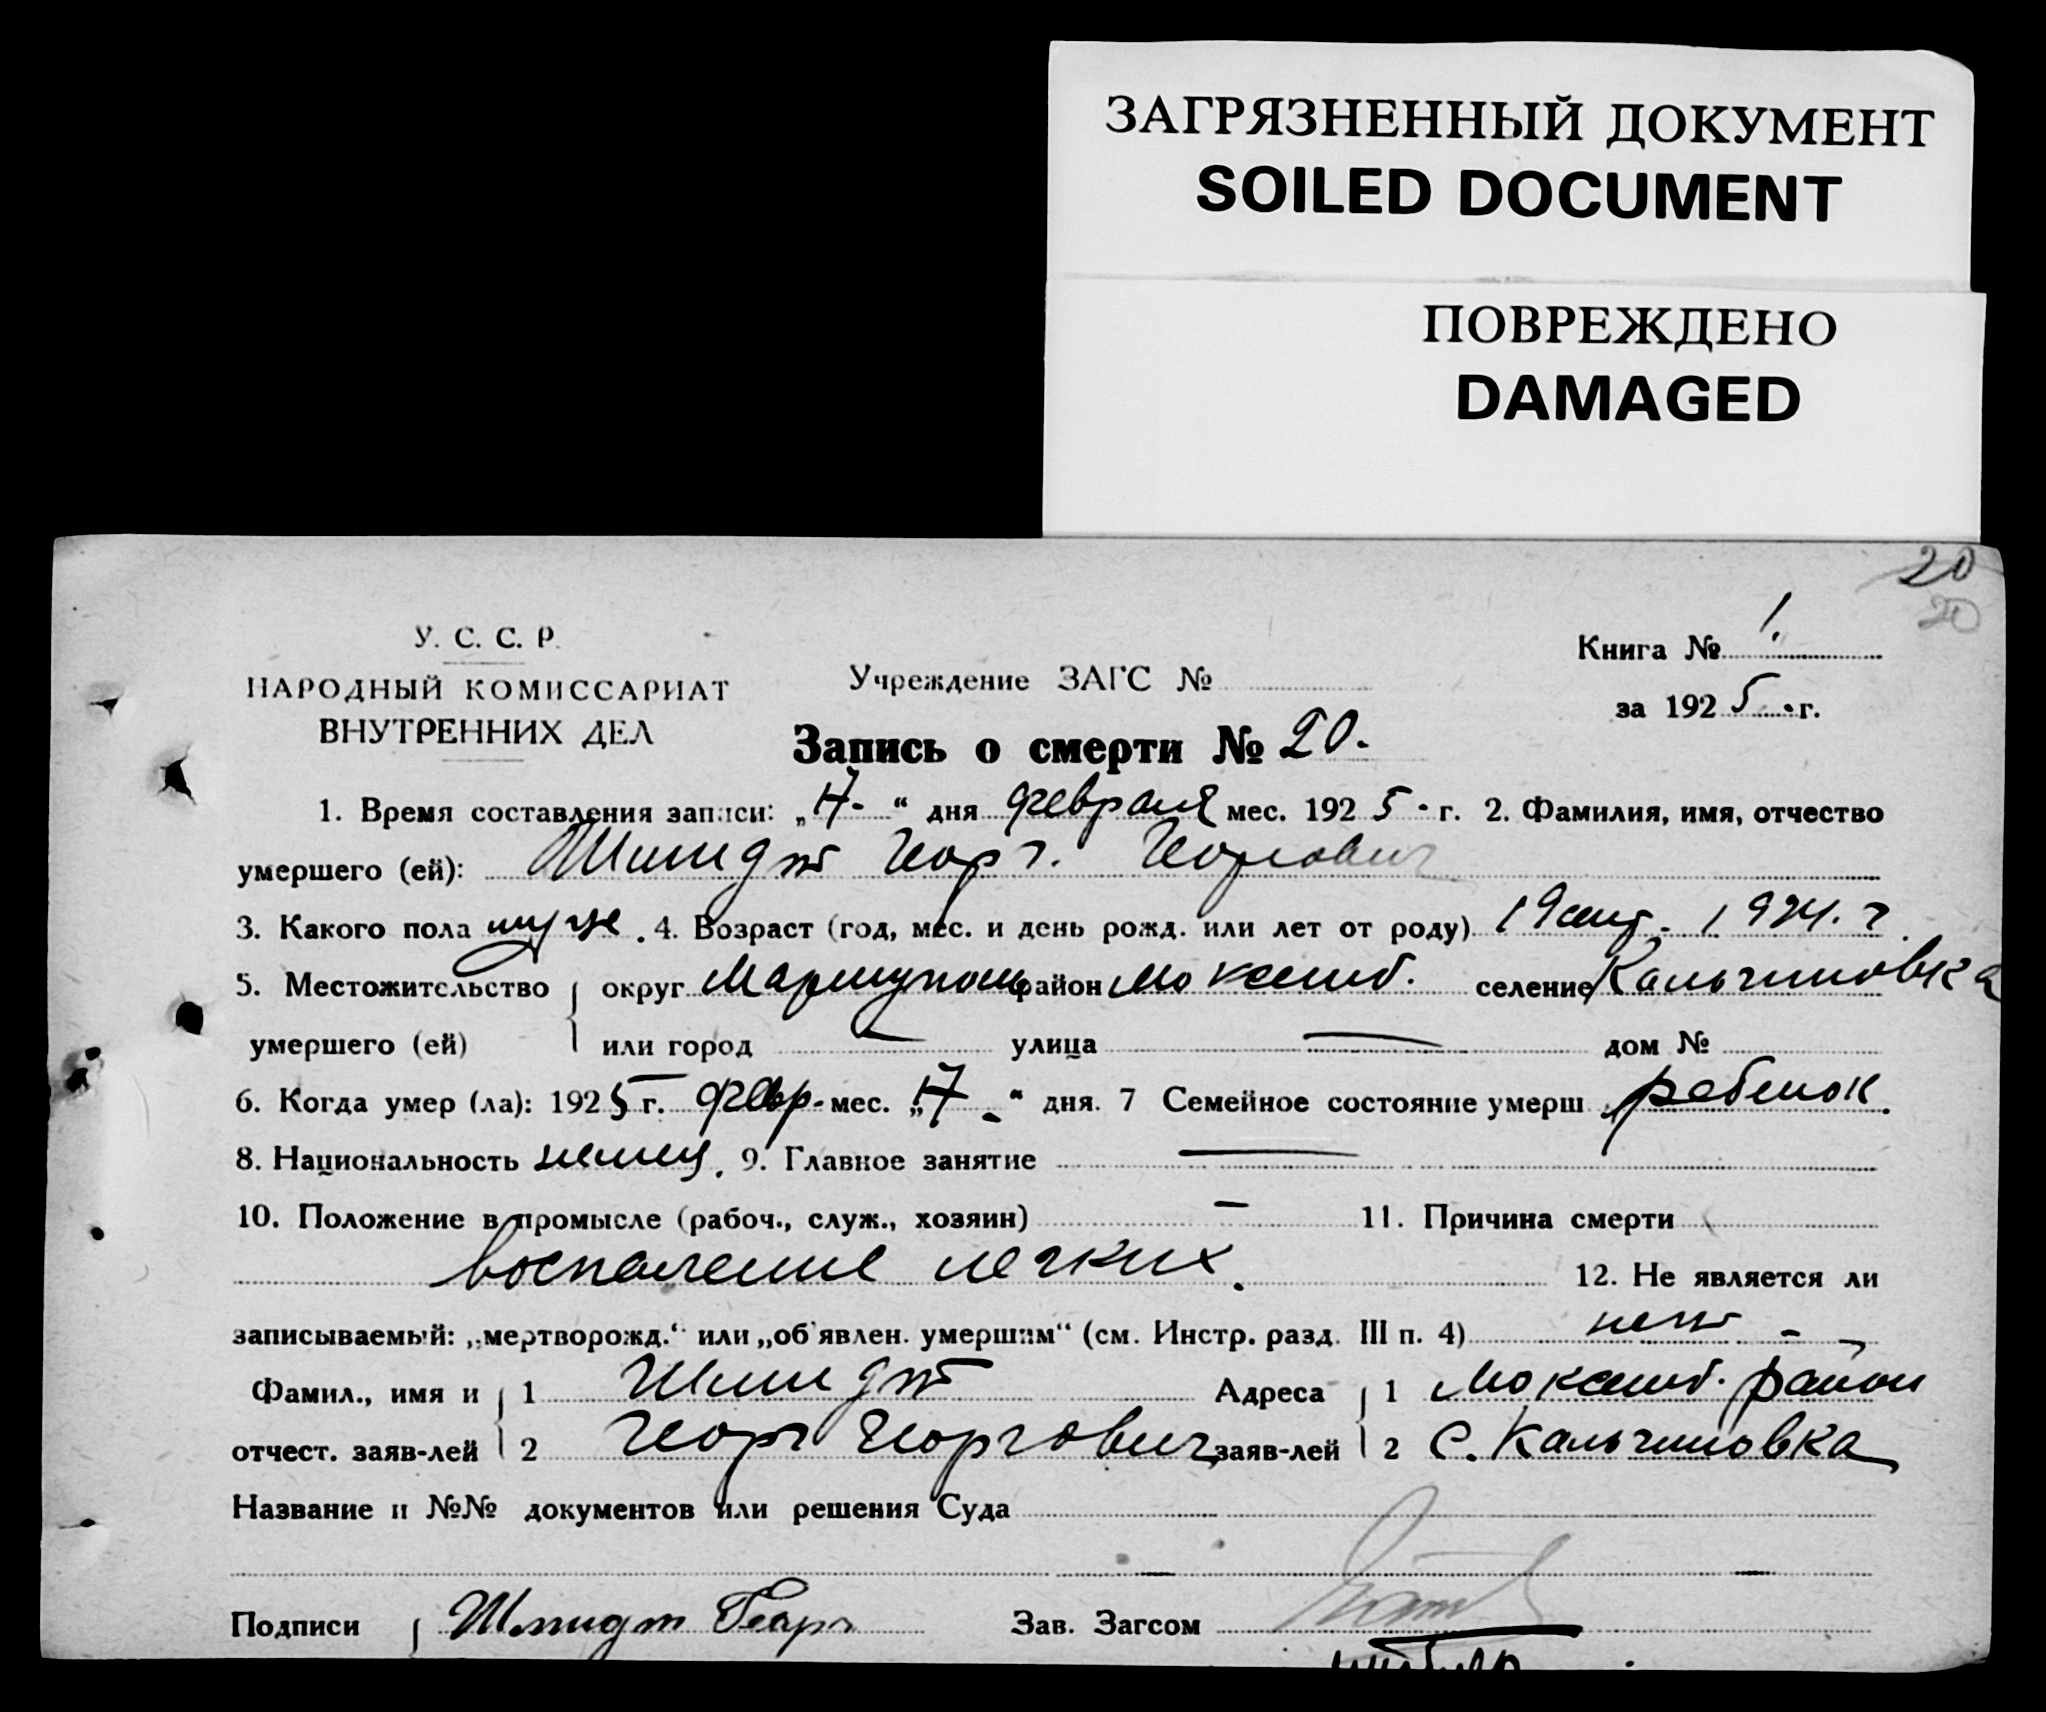 ЗАГРЯЗНЕННЫЙ ДОКУМЕНТ
SOILED DOCUMENT
ПОВРЕЖДЕНО
DAMAGED
20
20
У. С. С. Р.
НАРОДНЫЙ КОМИССАРИАТ
ВНУТРЕННИХ ДЕЛ
Учреждение ЗАГС №
Книга № 1.
за 1925 г.
Запись о смерти № 20.
1. Время составления записи: „17.“ дня февраля мес. 1925 г. 2. Фамилия, имя, отчество
умершего (ей): Шмидт Георг. Георгович
3. Какого пола муж. 4. Возраст (год, мес. и день рожд. или лет от роду) 19 1924. г.
5. Местожительство округ Мариупол район селение Кальчиновка
умершего (ей) или город — улица — дом №
6. Когда умер (ла): 1925 г. февр. мес. „17.“ дня. 7 Семейное состояние умерш ребенок.
8. Национальность немец. 9. Главное занятие —
10. Положение в промысле (рабоч., служ., хозяин) — 11. Причина смерти
воспаление легких. 12. Не является ли
записываемый: „мертворожд.“ или „об'явлен. умершим“ (см. Инстр. разд. III п. 4) нет - -
Фамил., имя и 1 Шмидт Адреса 1 район
отчест. заяв-лей 2 Георг Георгович заяв-лей 2 с. Кальчиновка
Название и №№ документов или решения Суда
Подписи Шмидт Георг Зав. Загсом